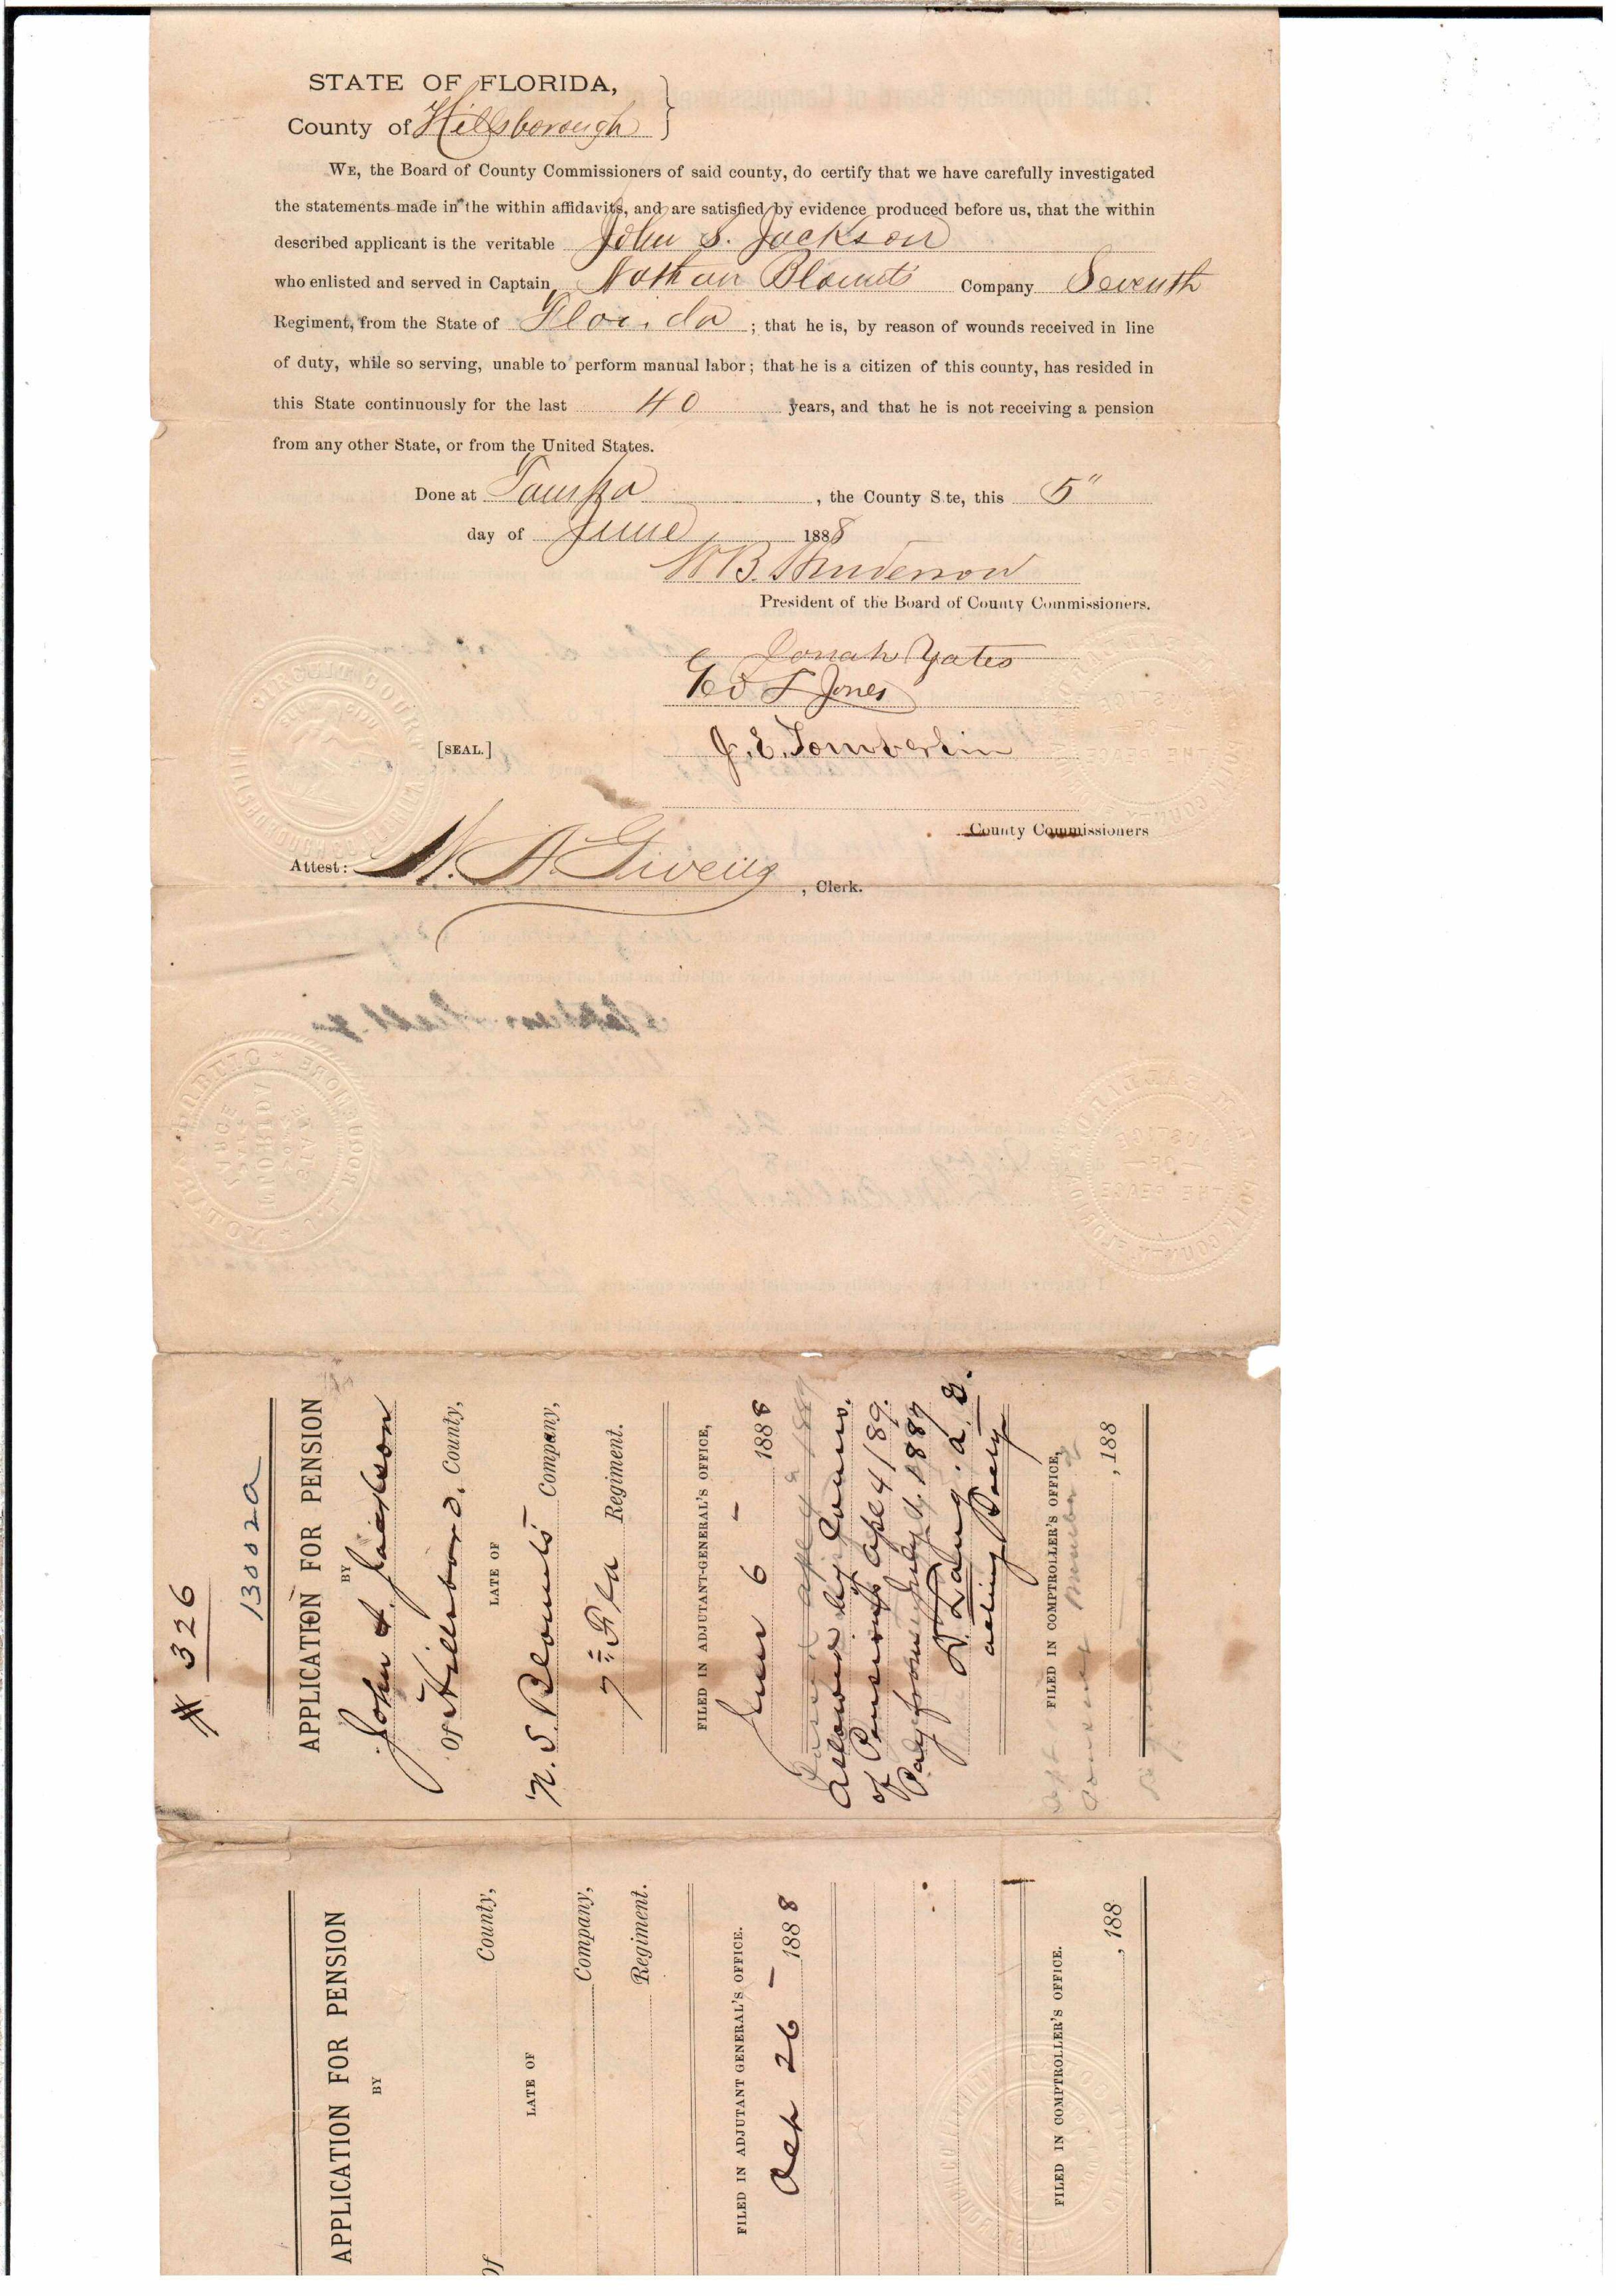 STATE OF FLORIDA,
County of Hillsborough
WE, the Board of County Commissioners of said county, do certify that we have carefully investigated
the statements made in the within affidavits, and are satisfied by evidence produced before us, that the within
described applicant is the veritable John S. Jackson
who enlisted and served in Captain Nathan Blounts Company Seventh
Regiment, from the State of Florida ; that he is, by reason of wounds received in line
of duty, while so serving, unable to perform manual labor; that he is a citizen of this county, has resided in
this State continuously for the last 40 years, and that he is not receiving a pension
from any other State, or from the United States.
Done at Tampa , the County S te, this 5"
day of June 1888
W B. Henderson
President of the Board of County Commissioners.
Jonah Yates
Geo T Jones
[SEAL.]
J. E. Tomberlin
County Commissioners
Attest: W. A Givens , Clerk.
CIRCUIT COURT
HILLSBOROUGH CO FLORIDA
JUSTICE
OF
THE PEACE
POLK COUNTY FLORIDA
NOTARY PUBLIC
STATE
FLORIDA
LARGE
JUSTICE
OF
THE PEACE
POLK COUNTY FLORIDA
# 326
13002A
APPLICATION FOR PENSION
BY
John S. Jackson
Of Hillsboro. County,
LATE OF
N. S. Blounts Company,
7th Fla Regiment.
FILED IN ADJUTANT-GENERAL'S OFFICE,
June 6 - 1888
Allowed by Comrs.
of Pensions Apl 4/89.
Pay from July 1, 1887
D. Lang. A. G.
acting Secty
FILED IN COMPTROLLER'S OFFICE,
, 188
APPLICATION FOR PENSION
BY
Of County,
LATE OF
Company,
Regiment.
FILED IN ADJUTANT GENERAL'S OFFICE.
Oct 26 - 1888
FILED IN COMPTROLLER'S OFFICE.
, 188